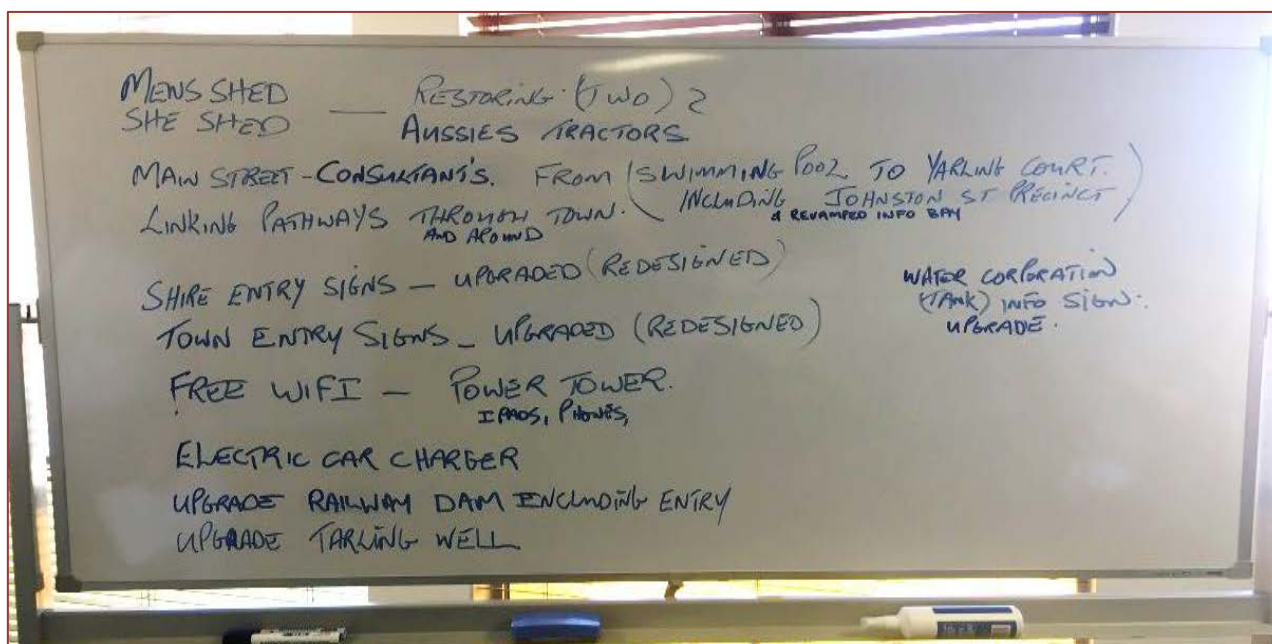 MENS SHED
SHE SHED — RESTORING (TWO) 2
AUSSIES TRACTORS
MAIN STREET - CONSULTANT'S. FROM (SWIMMING POOL TO YARLING COURT.
LINKING PATHWAYS THROUGH TOWN. INCLUDING JOHNSTON ST PRECINCT)
AND AROUND
& REVAMPED INFO BAY
SHIRE ENTRY SIGNS — UPGRADED (REDESIGNED)
TOWN ENTRY SIGNS — UPGRADED (REDESIGNED)
WATER CORPORATION
(TANK) INFO SIGN.
UPGRADE.
FREE WIFI — POWER TOWER.
IPADS, PHONES,
ELECTRIC CAR CHARGER
UPGRADE RAILWAY DAM INCLUDING ENTRY
UPGRADE TARLING WELL